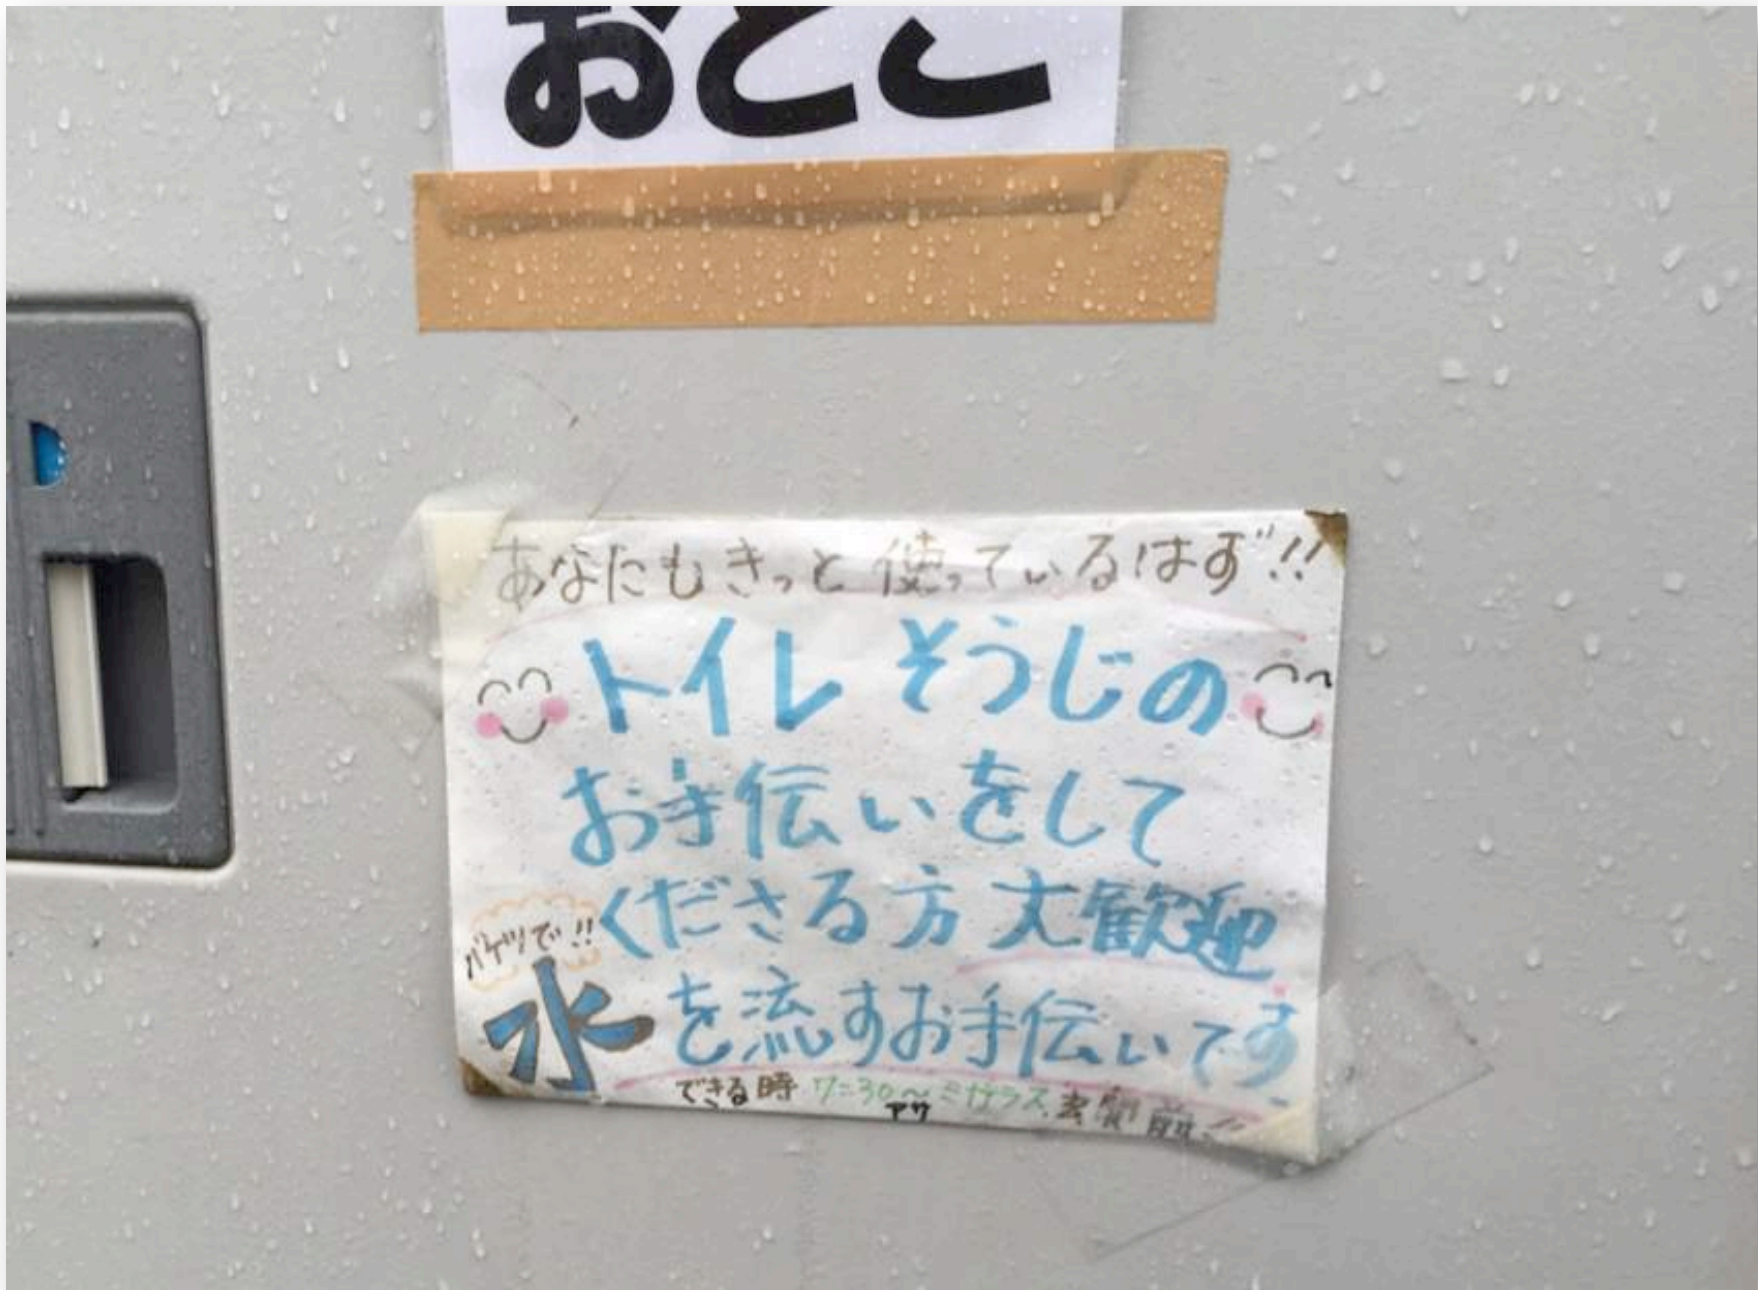 おとこ
あなたもきっと使っているはず!!
トイレそうじの
お手伝いをして
くださる方大歓迎
バケツで!!
水を流すお手伝いです
できる時 7=30〜ミサラス玄関前!!
アサ